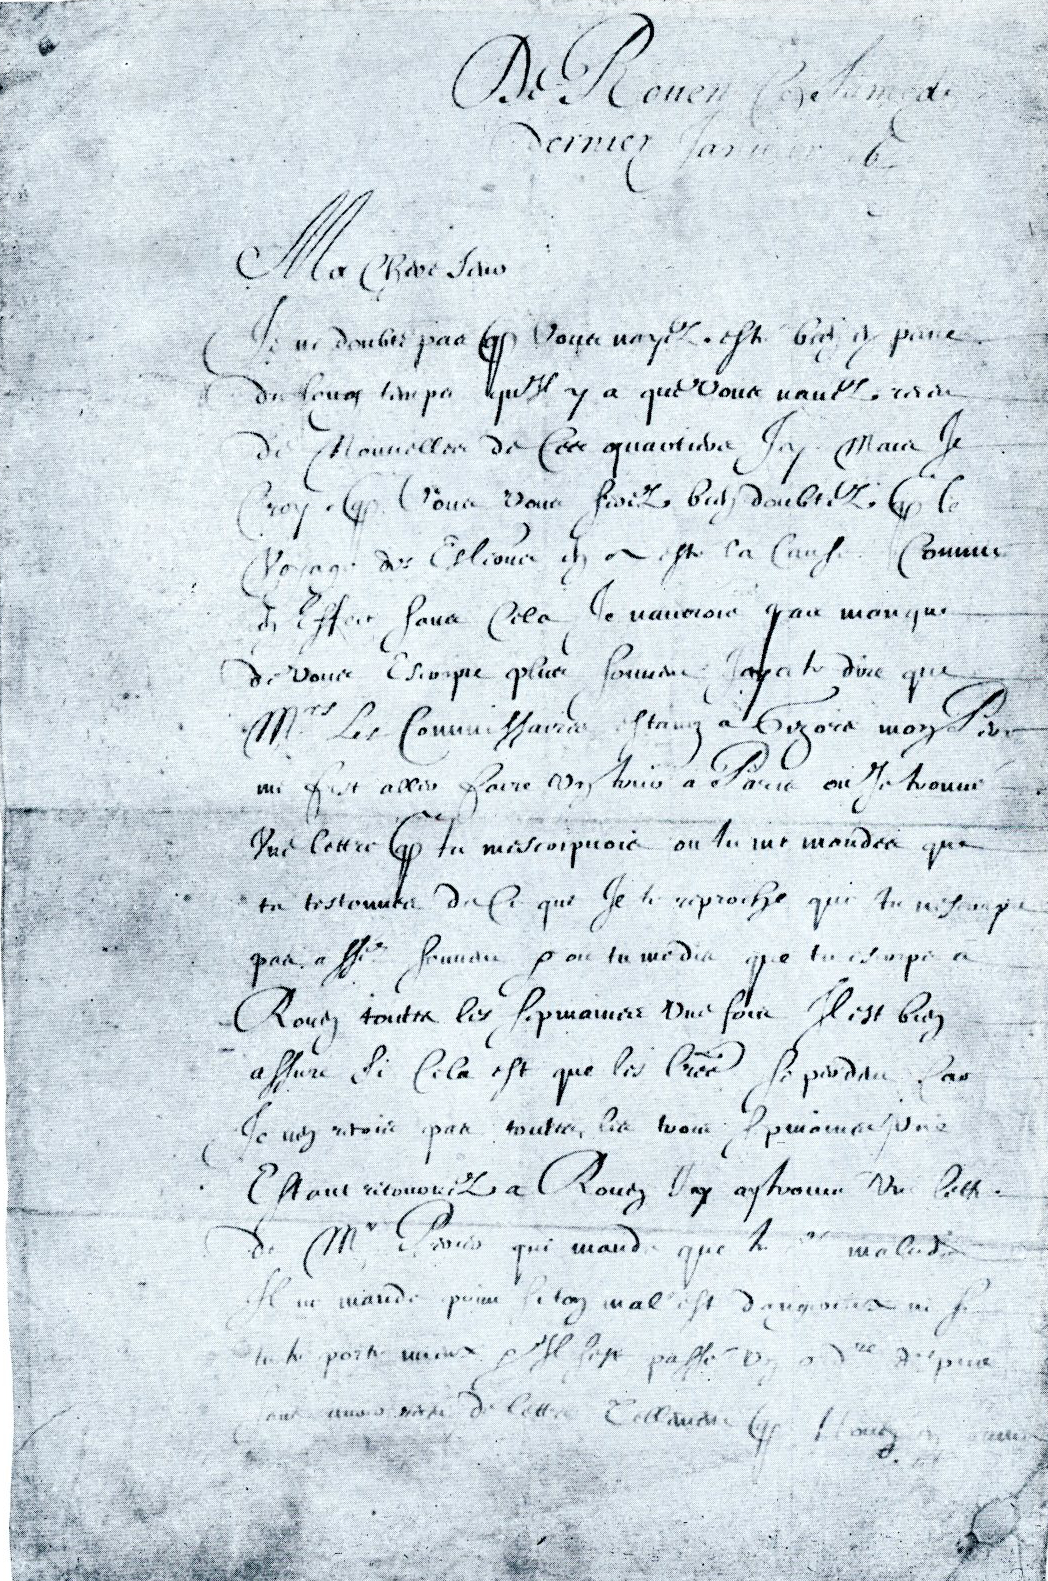 De Rouen Ce Samedy
dernier Janvier 16
Ma Chere Seur
Je ne doubte pas que vous nayez esté bien en peine
du long temps qu'il y a que vous navez receu
de Nouvelles de Ces quartiers Icy. Mais Je
Croy que Vous vous serez bien doubtez que le
Voyage des Esleus en a esté la Cause. Comme
en Effect sans Cela Je naurois pas manqué
de vous Escripre plus souvent Jay a te dire que
Mrs Les Commissaires estant a Gizors mon Pere
me fist aller faire un tour a Paris ou Je trouvé
Une lettre que tu mescripvois ou tu me mandes que
tu testonnes de Ce que Je te reproche que tu nescripz
pas assez souvent & ou tu me dis que tu escripz a
Rouen toutes les sepmaines une fois Il est bien
assuré Si Cela est que les lres se perdent Car
Je nen reçois pas toutes les trois sepmaines une
Estant retourné a Rouen Jay ay trouvé une lettre
de Mr Perier qui mande que tu es malade
Il ne mande point si ton mal est dangereux ni si
tu te portes mieux & Il sest passé un ordre depuis
sans avoir receu de lettre Tellement que Nous en